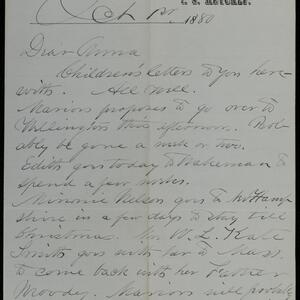 Oct 1st 1880
Dear Anna
Children's letters to you here-
with. All well.
Marion proposes to go over to
Wellington this afternoon. Prob-
ably be gone a week or two.
Edith goes today to Wakeman to
spend a few weeks.
Minnie Nelson goes to N. Hamp
shire in a few days to stay till
Christmas. Mr W. L.
Smith goes with her to Mass.
to come back with her Father
Moody. Marion will probably